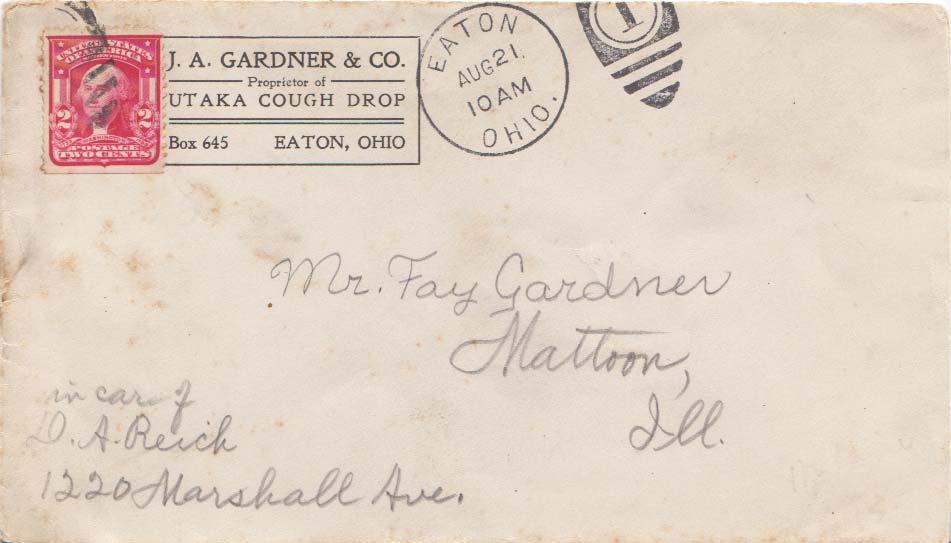 UNITED STATES
OF AMERICA
2 2
WASHINGTON
POSTAGE
TWO CENTS
J. A. GARDNER & CO.
Proprietor of
UTAKA COUGH DROP
Box 645 EATON, OHIO
EATON
AUG 21.
10 AM
OHIO.
1
Mr. Fay Gardner
Mattoon,
Ill.
in car of
D. A. Reich
1220 Marshall Ave.